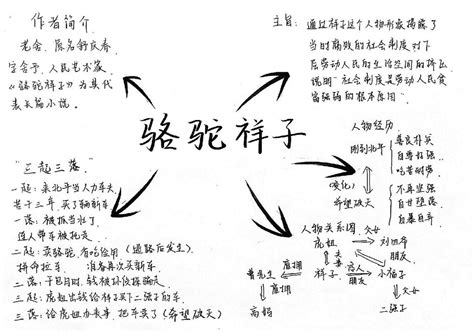 作者简介
老舍、原名舒庆春
字舍予,人民艺术家
《骆驼祥子》为其代
表长篇小说。
主旨:通过祥子这个人物形象揭露了
当时腐败的社会制度对下
层劳动人民的生活空间的挤占
说明"社会制度是劳动人民贫
富强弱的根本原因"
骆驼祥子
"三起三落"
一起:来北平当人力车夫
苦干三年,买了辆新车
一落:被抓当壮丁
连人带车被抢走
二起:卖骆驼,省吃俭用(逃路后发生)
拼命拉车,准备再次买新车
二落:干包月时,钱被孙侦探骗走
三起:虎妞出钱给祥子买下二强子的车
三落:给虎妞办丧事,把车卖了(希望破灭)
人物经历
刚到北平
善良朴实
自尊好强
吃苦耐劳
(变化)
希望破灭
不再坚强
自甘堕落
自暴自弃
人物关系图
虎妞
父女
刘四爷
夫妻
朋友
曹先生
雇佣
祥子
恋人
朋友
小福子
雇佣
父女
高妈
二强子